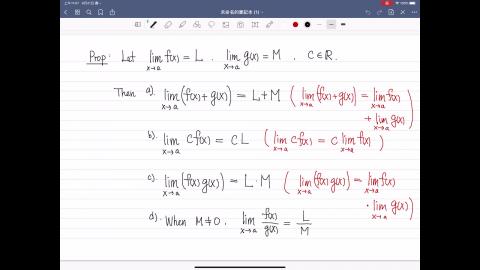 Prop: Let lim_{x→a} f(x) = L , lim_{x→a} g(x) = M , C ∈ ℝ.
Then a). lim_{x→a} (f(x) + g(x)) = L + M ( lim_{x→a} (f(x) + g(x)) = lim_{x→a} f(x)
+ lim_{x→a} g(x) )
b). lim_{x→a} C f(x) = C L ( lim_{x→a} C f(x) = C lim_{x→a} f(x) )
c). lim_{x→a} (f(x) g(x)) = L · M ( lim_{x→a} (f(x) g(x)) = lim_{x→a} f(x)
· lim_{x→a} g(x) )
d). When M ≠ 0 , lim_{x→a} f(x)/g(x) = L/M